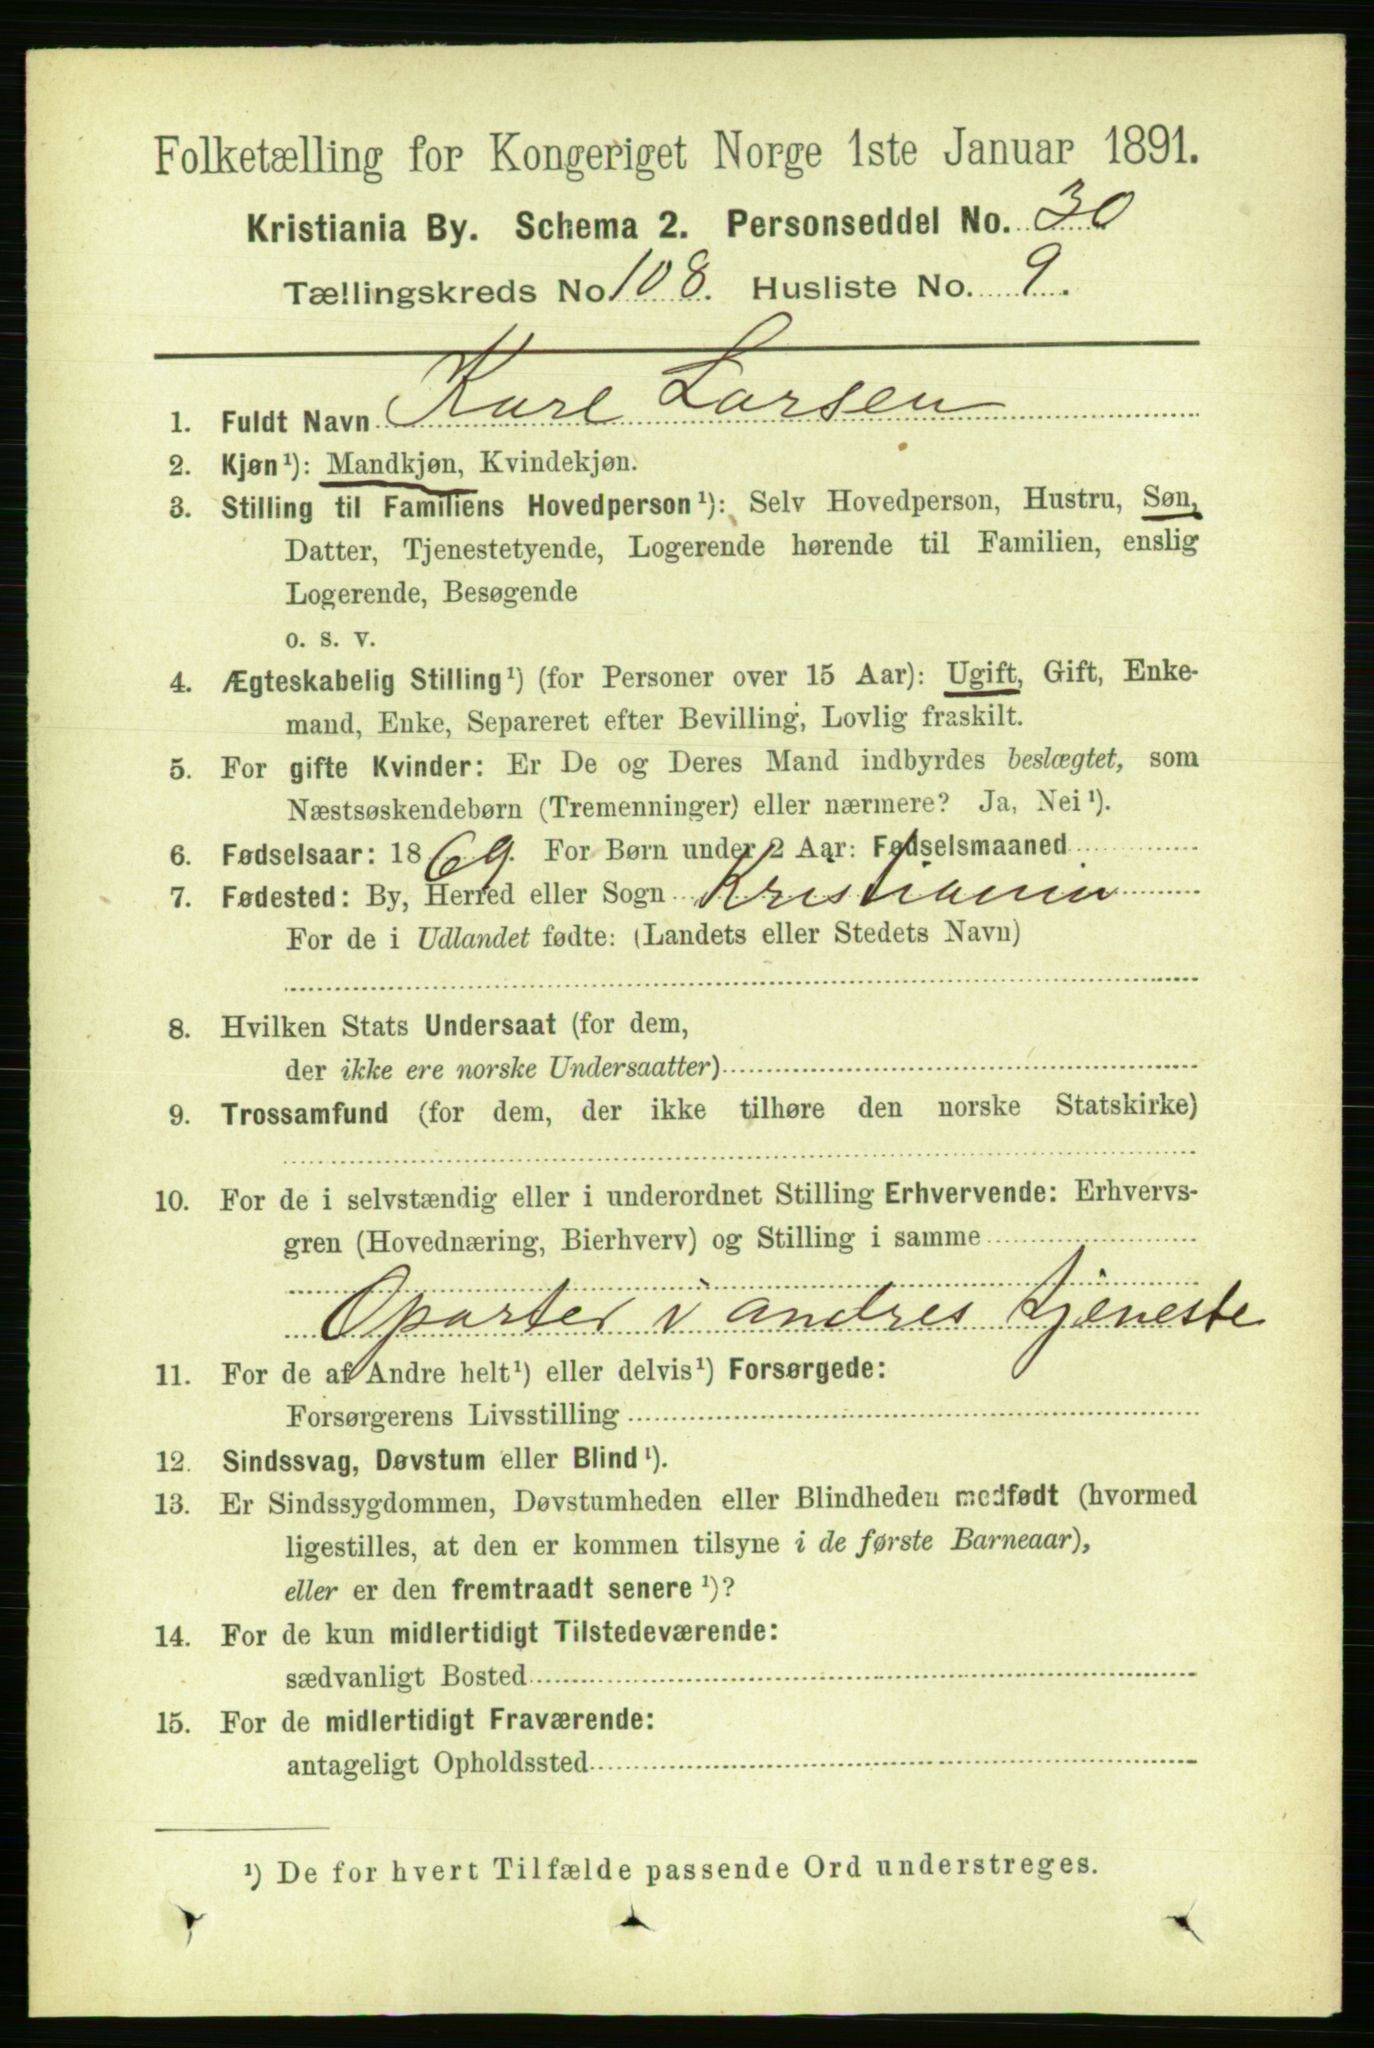 Folketælling for Kongeriget Norge 1ste Januar 1891.
Kristiania By. Schema 2. Personseddel No. 30
Tællingskreds No 108. Husliste No. 9.
1. Fuldt Navn Karl Larsen
2. Kjøn¹): Mandkjøn, Kvindekjøn.
3. Stilling til Familiens Hovedperson¹): Selv Hovedperson, Hustru, Søn,
Datter, Tjenestetyende, Logerende hørende til Familien, enslig
Logerende, Besøgende
o. s. v.
4. Ægteskabelig Stilling¹) (for Personer over 15 Aar): Ugift, Gift, Enke-
mand, Enke, Separeret efter Bevilling, Lovlig fraskilt.
5. For gifte Kvinder: Er De og Deres Mand indbyrdes beslægtet, som
Næstsøskendebørn (Tremenninger) eller nærmere? Ja, Nei¹).
6. Fødselsaar: 1869. For Børn under 2 Aar: Fødselsmaaned
7. Fødested: By, Herred eller Sogn Kristiania
For de i Udlandet fødte: (Landets eller Stedets Navn)
8. Hvilken Stats Undersaat (for dem,
der ikke ere norske Undersaatter)
9. Trossamfund (for dem, der ikke tilhøre den norske Statskirke)
10. For de i selvstændig eller i underordnet Stilling Erhvervende: Erhvervs-
gren (Hovednæring, Bierhverv) og Stilling i samme
Oparter i andres tjeneste
11. For de af Andre helt¹) eller delvis¹) Forsørgede:
Forsørgerens Livsstilling
12. Sindssvag, Døvstum eller Blind¹).
13. Er Sindssygdommen, Døvstumheden eller Blindheden medfødt (hvormed
ligestilles, at den er kommen tilsyne i de første Barneaar),
eller er den fremtraadt senere¹)?
14. For de kun midlertidigt Tilstedeværende:
sædvanligt Bosted
15. For de midlertidigt Fraværende:
antageligt Opholdssted
¹) De for hvert Tilfælde passende Ord understreges.